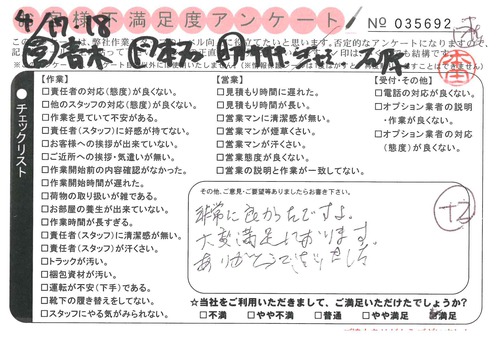 お客様不満足度アンケート
No 035692
4/17 18
チェックリスト
【作業】
□責任者の対応(態度)が良くない。
□他のスタッフの対応(態度)が良くない。
□作業を見ていて不安がある。
□責任者(スタッフ)に好感が持てない。
□お客様への挨拶が出来ていない。
□ご近所への挨拶・気遣いが無い。
□作業開始前の内容確認がなかった。
□作業開始時間が遅れた。
□荷物の取り扱いが雑である。
□お部屋の養生が出来ていない。
□作業時間が長すぎる。
□責任者(スタッフ)に清潔感が無い。
□責任者(スタッフ)が汗くさい。
□トラックが汚い。
□梱包資材が汚い。
□運転が不安(下手)である。
□靴下の履き替えをしてない。
□スタッフにやる気がみられない。
【営業】
□見積もり時間に遅れた。
□見積もり時間が長い。
□営業マンに清潔感が無い。
□営業マンが煙草くさい。
□営業マンが汗くさい。
□営業態度が良くない。
□営業の説明と作業が一致してない。
【受付・その他】
□電話の対応が良くない。
□オプション業者の説明
・作業が良くない。
□オプション業者の対応
(態度)が良くない。
その他、ご意見・ご要望等ありましたらお書き下さい。
非常に良かったですよ。
大変満足しております。
ありがとうございました
☆当社をご利用いただきまして、ご満足いただけたでしょうか?
□不満 □やや不満 □普通 □やや満足 □満足